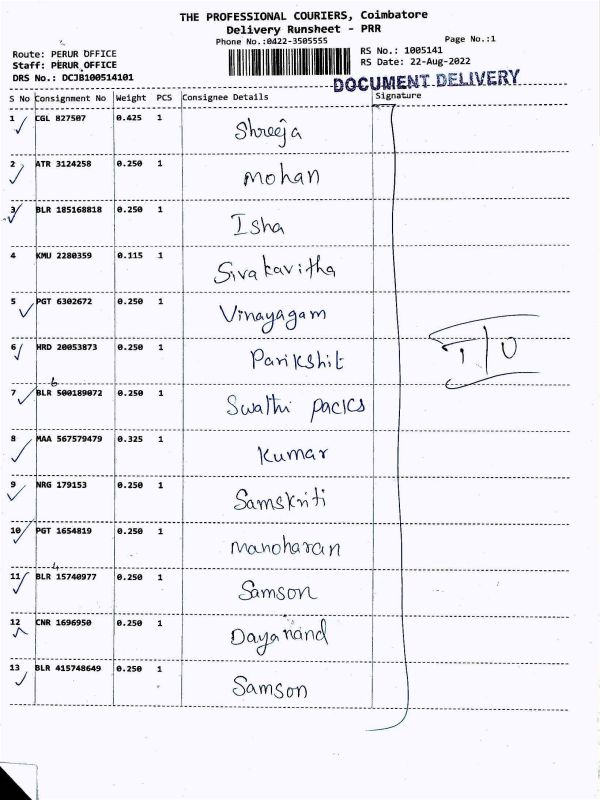 THE PROFESSIONAL COURIERS, Coimbatore
Delivery Runsheet - PRR
Phone No.:0422-3505555 Page No.:1
Route: PERUR OFFICE RS No.: 1005141
Staff: PERUR OFFICE RS Date: 22-Aug-2022
DRS No.: DCJB100514101
DOCUMENT DELIVERY
S No Consignment No Weight PCS Consignee Details Signature
1 CGL 827507 0.425 1 Shreeja
2 ATR 3124258 0.250 1 Mohan
3 BLR 185168818 0.250 1 Isha
4 KMU 2280359 0.115 1 Sivakavitha
5 PGT 6302672 0.250 1 Vinayagam
6 HRD 20053873 0.250 1 Parikshit
7 BLR 500189072 0.250 1 Swathi packs
8 MAA 567579479 0.325 1 Kumar
9 NRG 179153 0.250 1 Samskriti
10 PGT 1654819 0.250 1 Manoharan
11 BLR 15740977 0.250 1 Samson
12 CNR 1696950 0.250 1 Dayanand
13 BLR 415748649 0.250 1 Samson